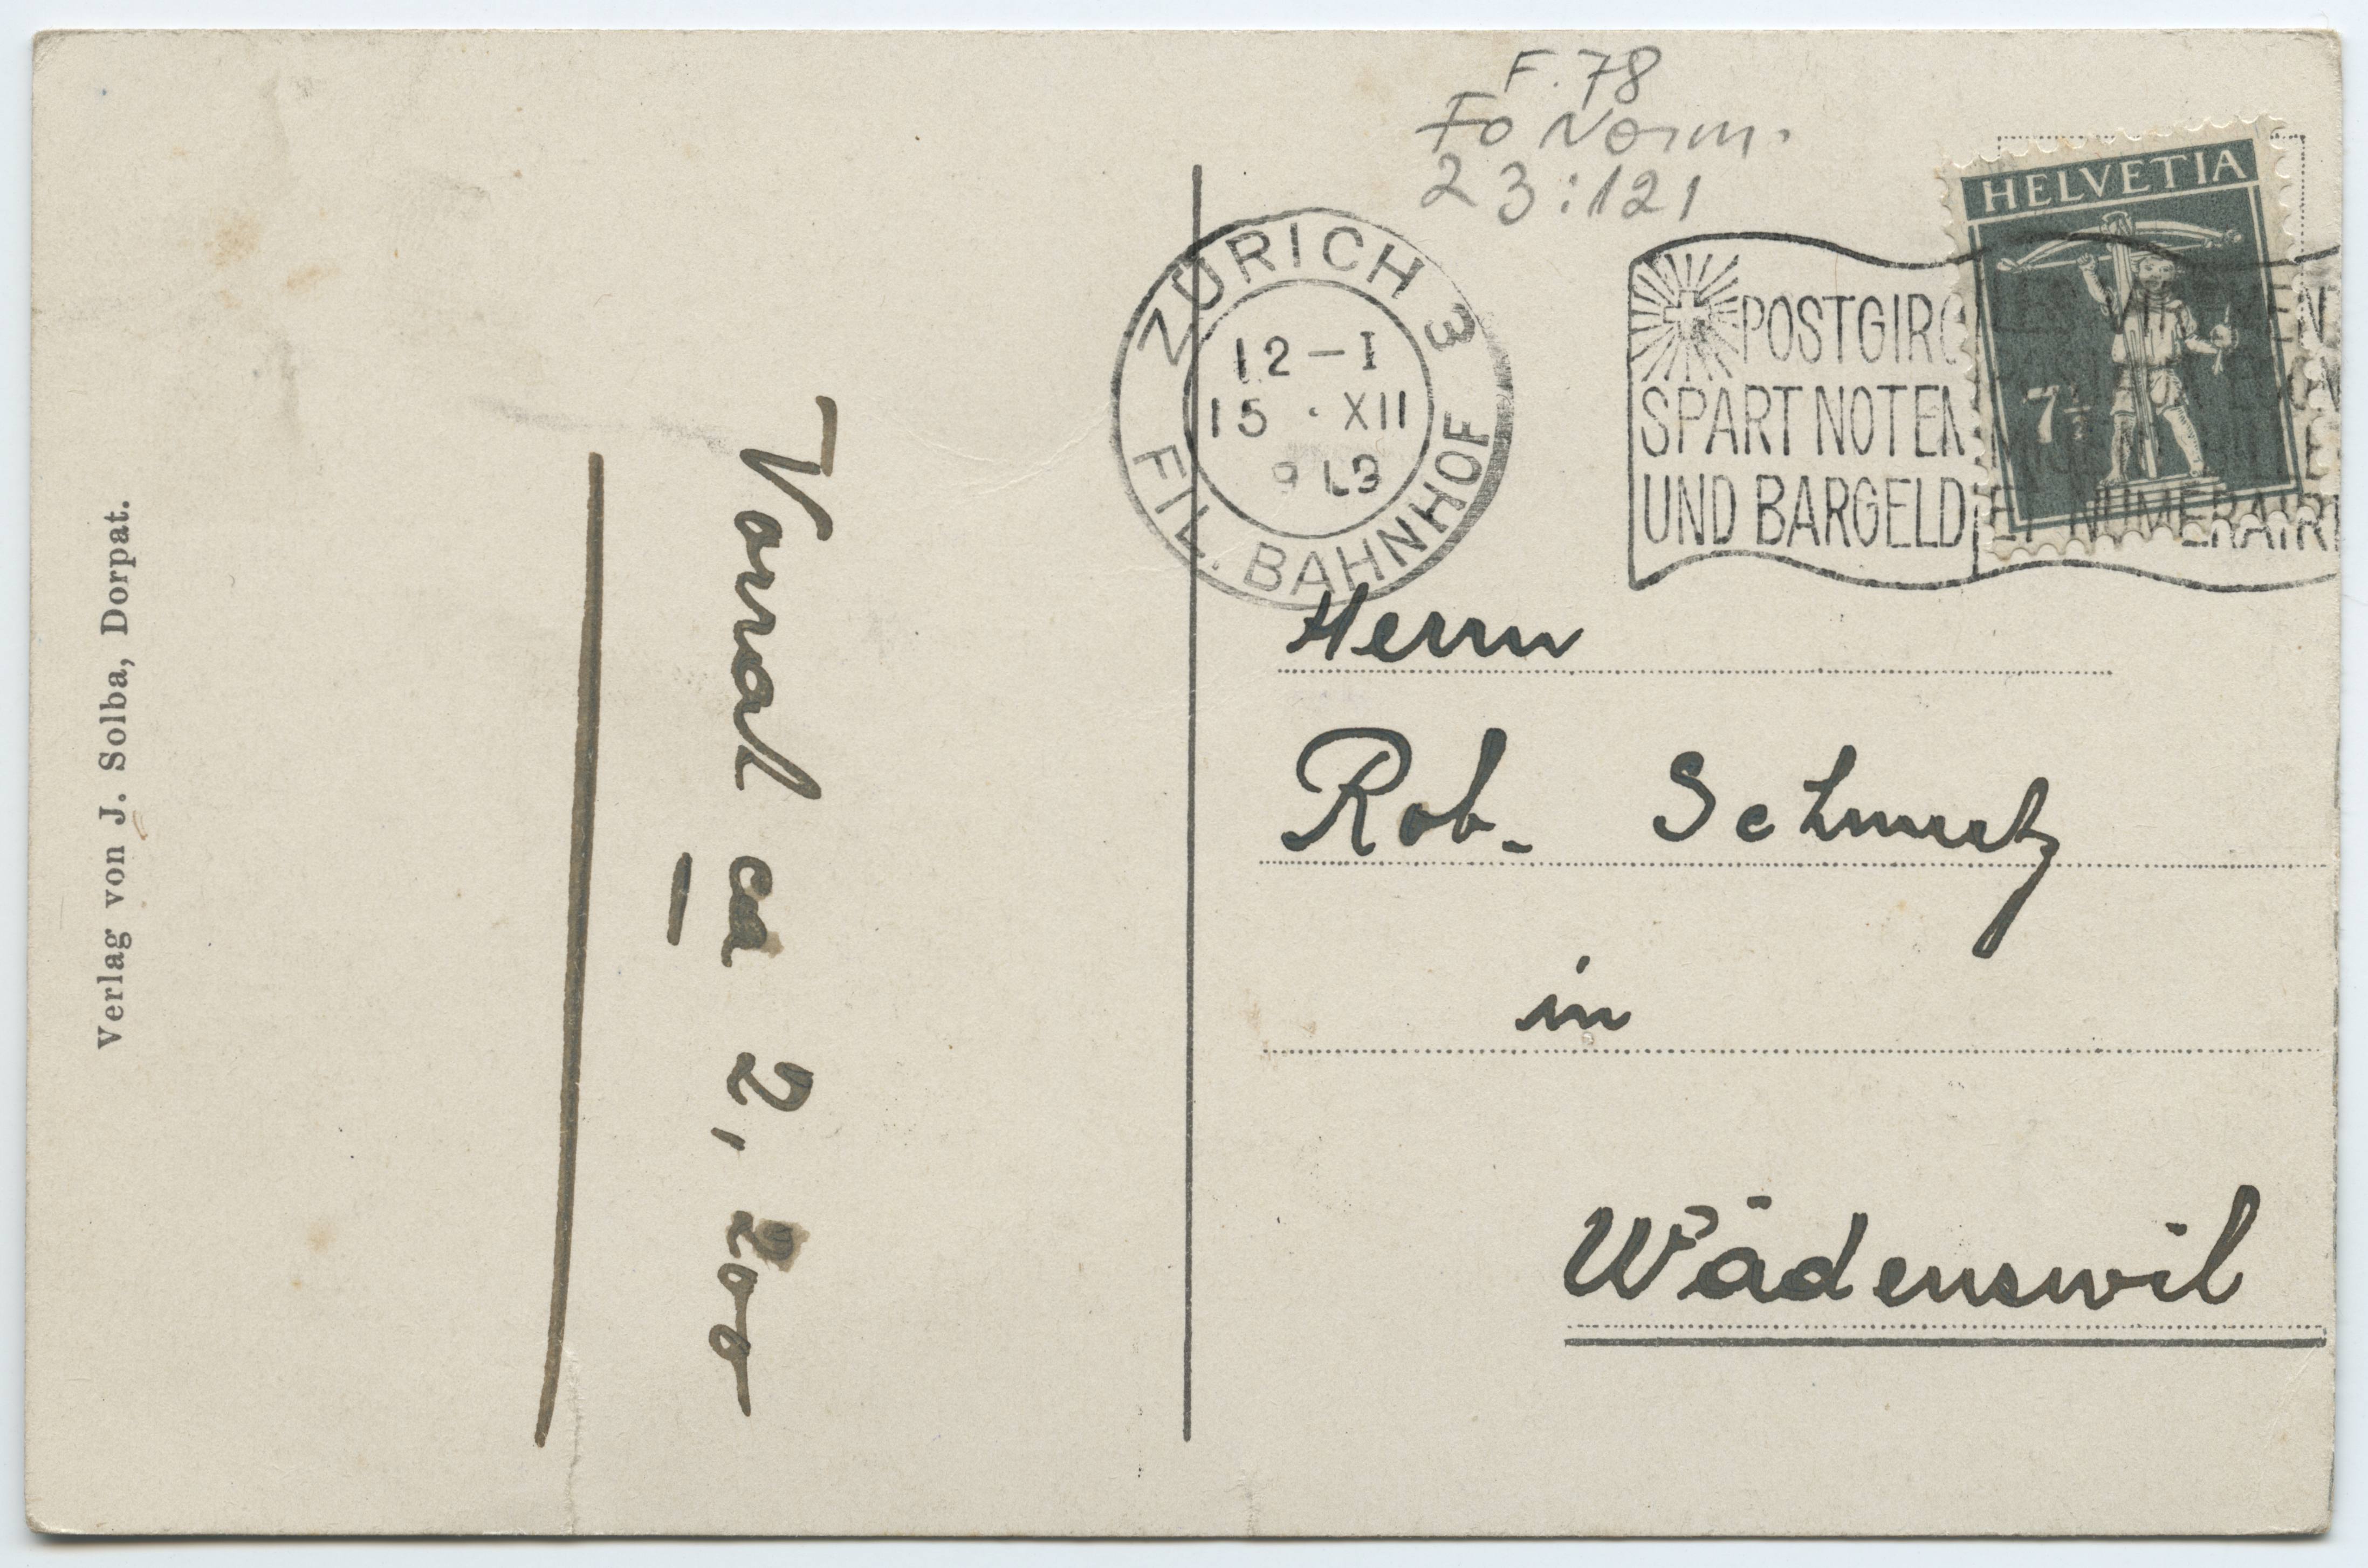 F. 78
Fo Norm.
23:121
HELVETIA
7½
ZÜRICH 3
12-I
15 · XII
FIL. BAHNHOF
POSTGIRO
SPART NOTEN
UND BARGELD
ET NUMERAIRE
Herrn
Rob. Schmutz
in
Wädenswil
Vorrat ca 2,200
Verlag von J. Solba, Dorpat.